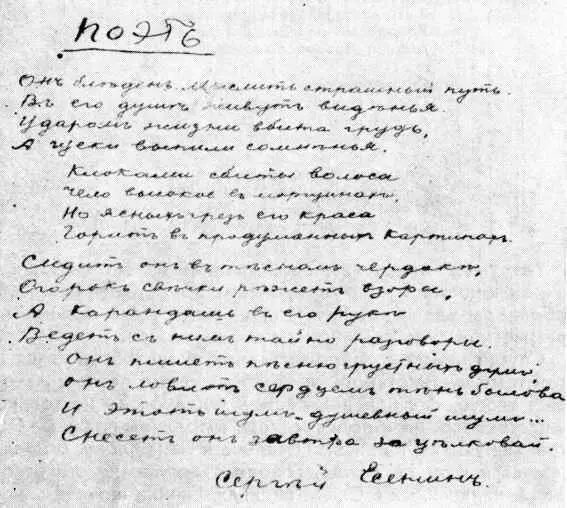 ПОЭТЪ
Онъ блѣденъ. Мыслитъ страшный путь.
Въ его душѣ живутъ видѣнья.
Ударомъ жизни вбита грудь,
А щеки выпили сомнѣнья.
Клоками сбиты волоса
Чело высокое въ морщинахъ,
Но ясныхъ грезъ его краса
Горитъ въ продуманныхъ картинахъ.
Сидитъ онъ въ тѣсномъ чердакѣ,
Огарокъ свѣчки рѣжетъ взоры,
А карандашъ въ его рукѣ
Ведетъ съ нимъ тайно разговоры.
Онъ пишетъ пѣсню грустныхъ думъ,
Онъ ловитъ сердцемъ тѣнь былова
И этотъ шумъ, душевный шумъ...
Снесетъ онъ завтра за цѣлковай.
Сергѣй Есенинъ.